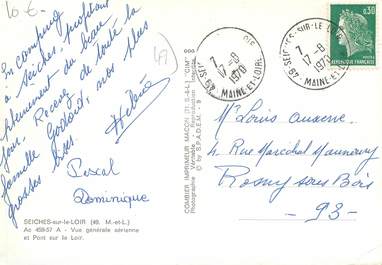 10 €
49
En camping
à Seiches, profitons
pleinement du beau
jour. Recevez de toute la
famille Godoid, nos plus
grosses bises
Hélène
Pascal
Dominique
SEICHES-sur-le-LOIR (49. M.-et-L.)
Ac 459-57 A - Vue générale aérienne
et Pont sur le Loir.
COMBIER IMPRIMEUR MACON (S.-&-L.) "CIM"
Photographie Véritable - Reproduction interdite
© by S.P.A.D.E.M. - 9
49 SEICHES-SUR-LE-LOIR
7
17-8
1970
MAINE-ET-LOIRE
0,30
REPUBLIQUE FRANÇAISE
Mr Louis Auxerre
4 Rue Marechal Maunoury
Rosny sous Bois
- 93 -